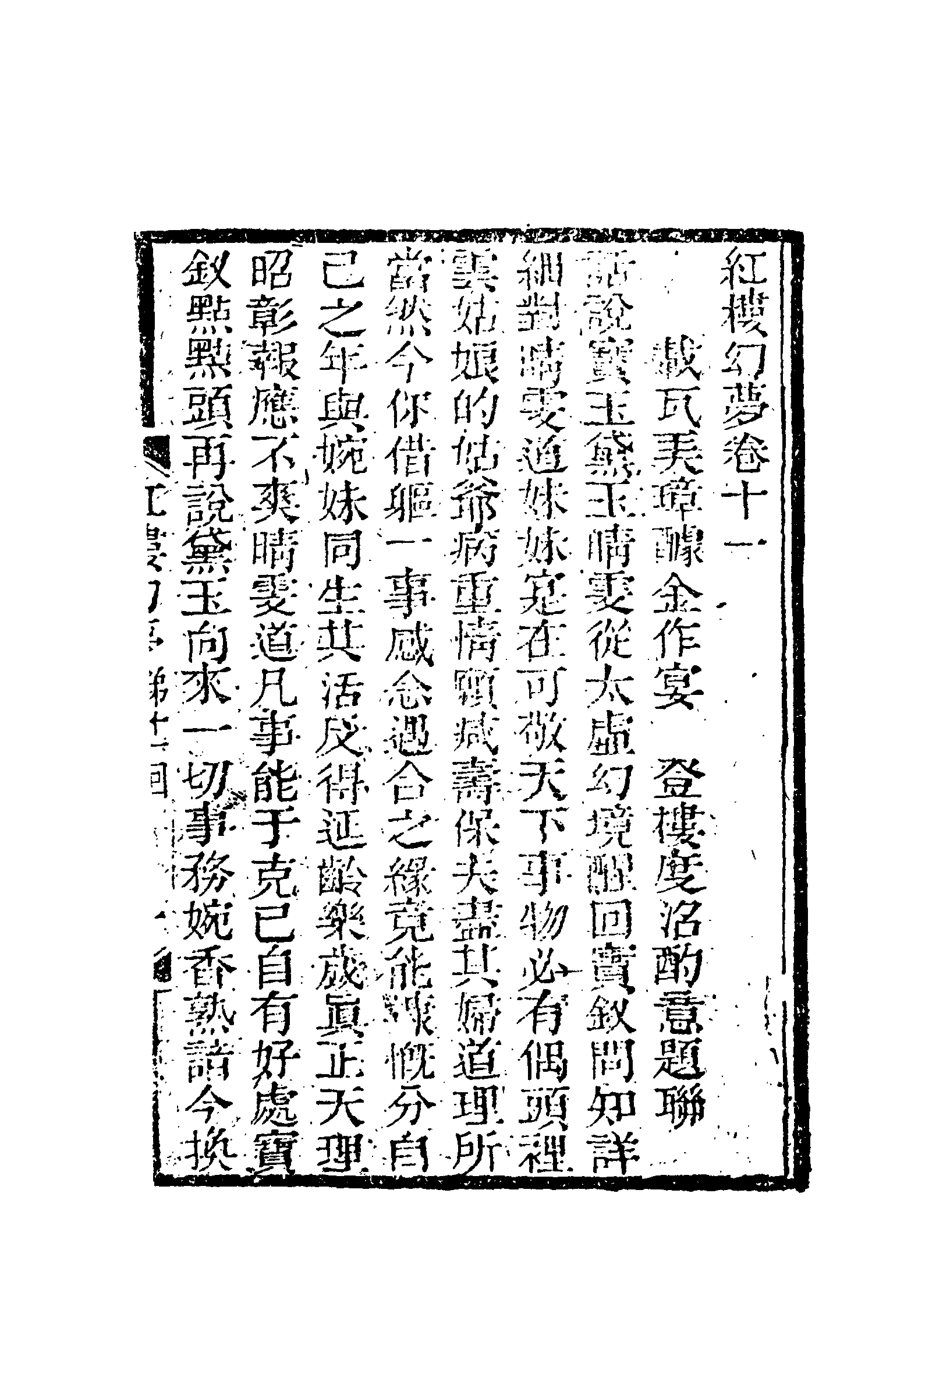 紅樓幻夢卷十一
載瓦弄璋醵金作宴　登樓度洺酌意題聯
話說寶玉黛玉晴雯從太虛幻境醒回寶釵問知詳
細對晴雯道妹妹寔在可敬天下事物必有偶頭裡
雲姑娘的姑爺病重情願減壽保夫盡其婦道理所
當然今你借軀一事感念遇合之緣竟能慷慨分自
己之年與婉妹同生共活反得延齡樂歲眞正天理
昭彰報應不爽晴雯道凡事能于克己自有好處寶
釵點點頭再說黛玉向來一切事務婉香熟諳今換
紅樓幻夢 第十一回 一